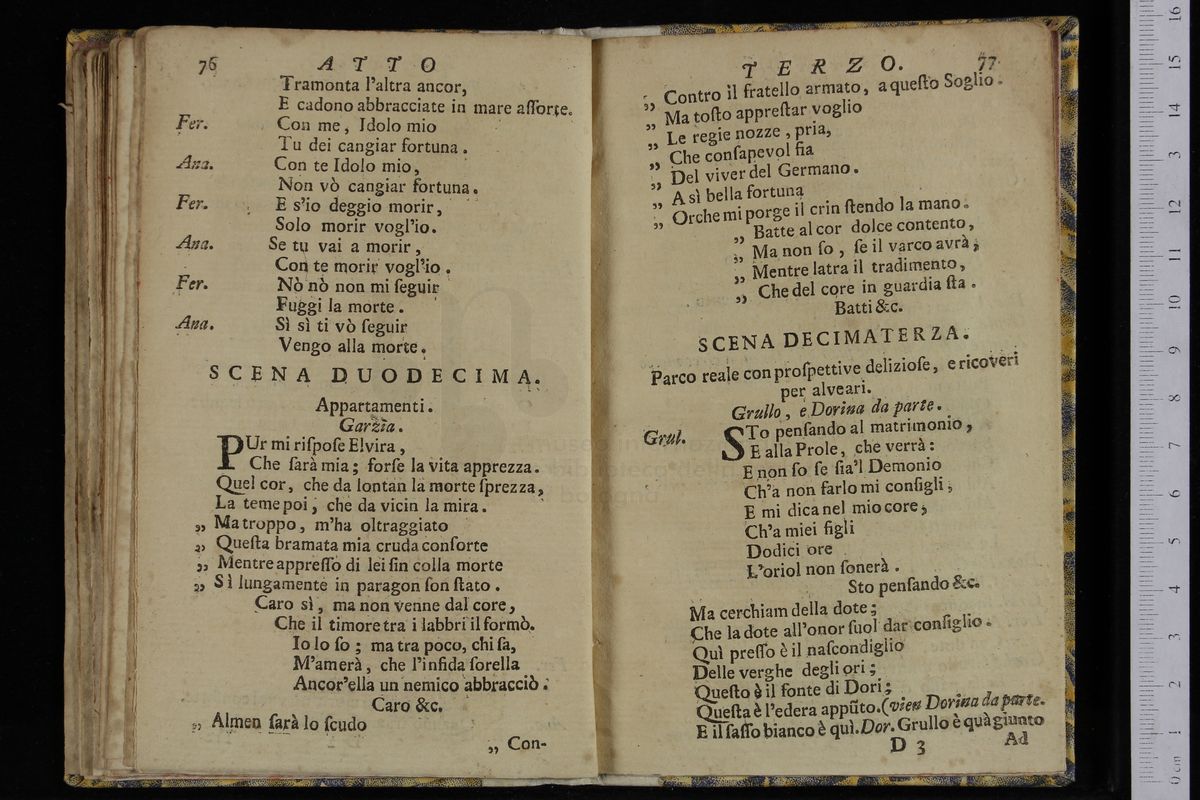 76 ATTO
Tramonta l'altra ancor,
E cadono abbracciate in mare aſſorte.
Fer. Con me, Idolo mio
Tu dei cangiar fortuna.
Ana. Con te Idolo mio,
Non vò cangiar fortuna.
Fer. E s'io deggio morir,
Solo morir vogl'io.
Ana. Se tu vai a morir,
Con te morir vogl'io.
Fer. Nò nò non mi ſeguir
Fuggi la morte.
Ana. Sì sì ti vò ſeguir
Vengo alla morte.
SCENA DUODECIMA.
Appartamenti.
Garzia.
PUr mi riſpoſe Elvira,
Che ſarà mia; forſe la vita apprezza.
Quel cor, che da lontan la morte ſprezza,
La teme poi, che da vicin la mira.
„ Ma troppo, m'ha oltraggiato
„ Queſta bramata mia cruda conſorte
„ Mentre appreſſo di lei ſin colla morte
„ Sì lungamente in paragon ſon ſtato.
Caro sì, ma non venne dal core,
Che il timore tra i labbri il formò.
Io lo ſo; ma tra poco, chi ſa,
M'amerà, che l'infida ſorella
Ancor'ella un nemico abbracciò.
Caro &c.
„ Almen ſarà lo ſcudo
„ Con-
TERZO. 77
„ Contro il fratello armato, a queſto Soglio.
„ Ma toſto appreſtar voglio
„ Le regie nozze, pria,
„ Che conſapevol ſia
„ Del viver del Germano.
„ A sì bella fortuna
„ Or che mi porge il crin ſtendo la mano.
„ Batte al cor dolce contento,
„ Ma non ſo, ſe il varco avrà;
„ Mentre latra il tradimento,
„ Che del core in guardia ſta.
Batti &c.
SCENA DECIMATERZA.
Parco reale con proſpettive delizioſe, e ricoveri
per alveari.
Grullo, e Dorina da parte.
Grul. STo penſando al matrimonio,
E alla Prole, che verrà:
E non ſo ſe ſia'l Demonio
Ch'a non farlo mi conſigli,
E mi dica nel mio core,
Ch'a miei figli
Dodici ore
L'oriol non ſonerà.
Sto penſando &c.
Ma cerchiam della dote;
Che la dote all'onor ſuol dar conſiglio.
Quì preſſo è il naſcondiglio
Delle verghe degli ori;
Queſto è il fonte di Dori;
Queſta è l'edera appũto. (vien Dorina da parte.
E il ſaſſo bianco è quì. Dor. Grullo è quà giunto
D 3 Ad